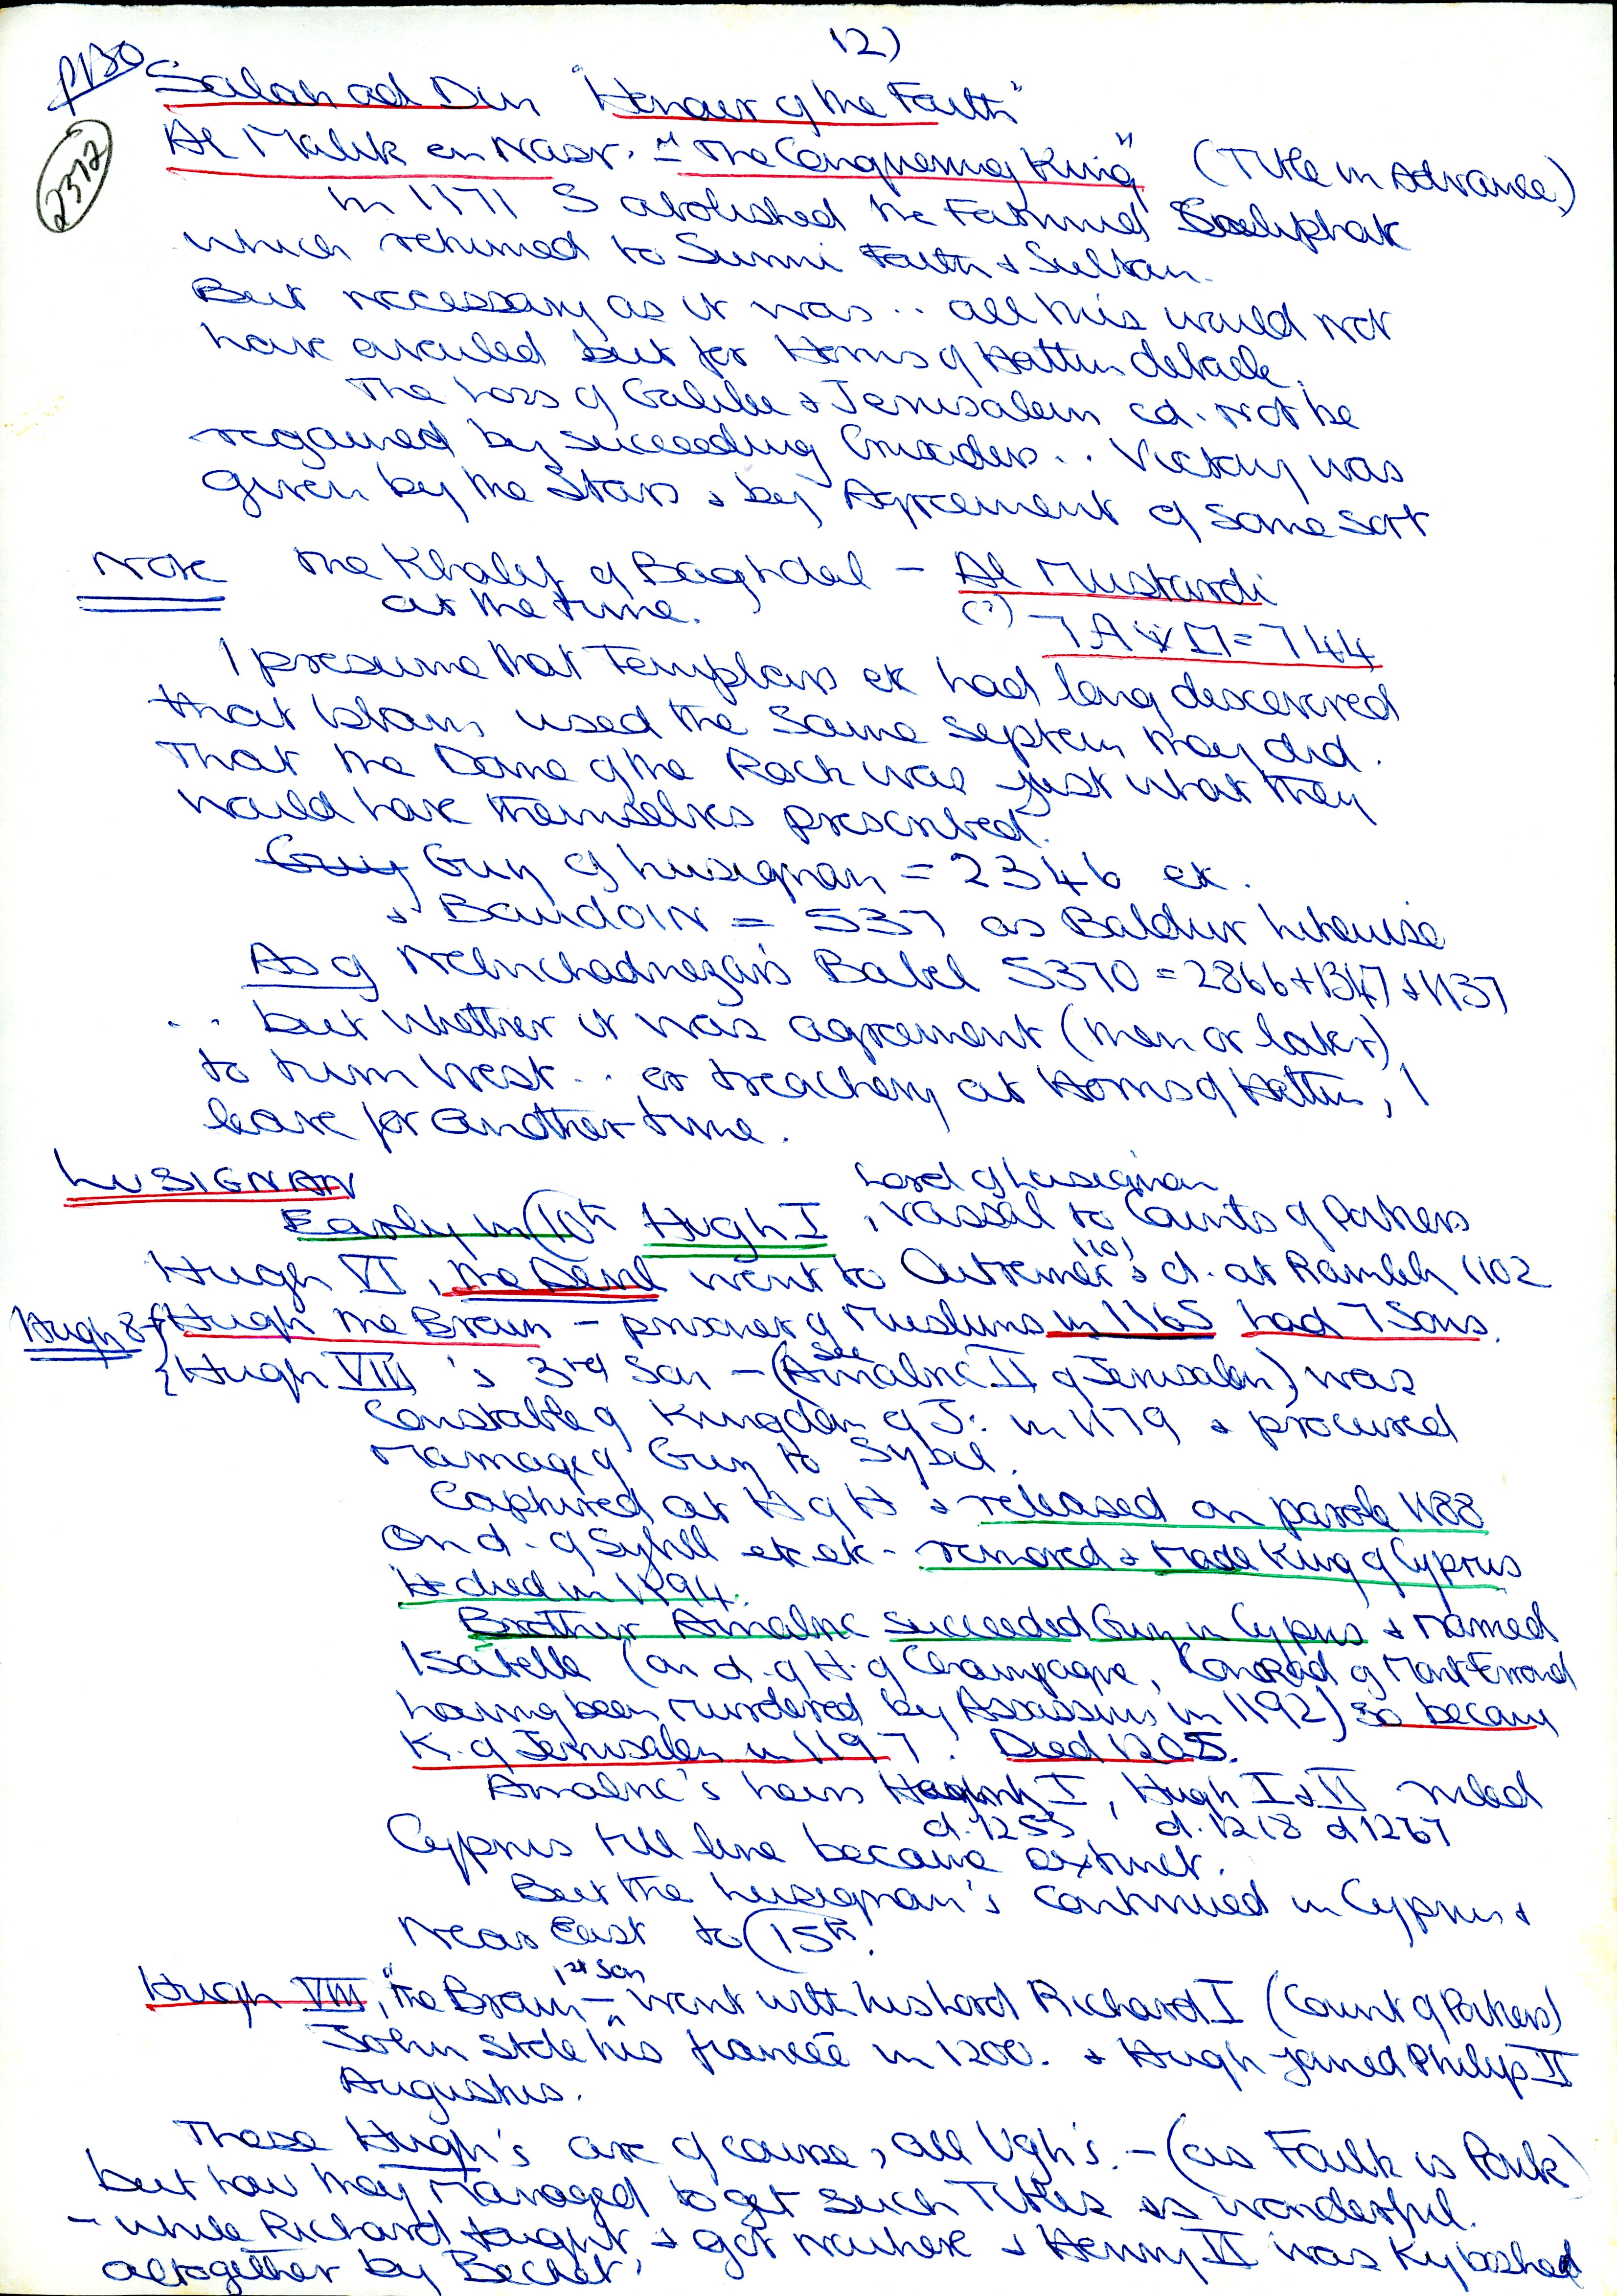 12)
P130
2372
Salah ad Din "Honour of the Faith"
Al Malik en Nasr. = "The Conquering King" (Title in Advance.)
In 1171 S abolished the Fatimid Caliphate
which returned to Sunni Faith & Sultan.
But necessary as it was .. all this would not
have availed but for Horns of Hattin debacle.
The Loss of Galilee & Jerusalem cd. not be
regained by succeeding Crusaders .. Victory was
given by the Stars & by Agreement of some sort
Note the Khalif of Baghdad - Al Mustardi
at the time. (?) 7 A W M = 744
I presume that Templars etc had long discovered
that Islam used the same system they did.
That the Dome of the Rock was just what they
would have themselves prescribed.
Guy Guy of Lusignan = 2346 etc.
& BaudoIN = 537 as Baldur likewise
As of Nebuchadnezar's Babel 5370 = 2866+1347+1137
.. but whether it was agreement (then or later)
to turn West .. or treachery at Horns of Hattin, I
leave for another time.
LUSIGNAN Lord of Lusignan
Early in 10th Hugh I, vassal to Counts of Poitiers
Hugh VI, the Devil went to Outremer 1101 & d. at Ramleh 1102
Hugh 8 { Hugh the Brown - prisoner of Muslims in 1165 had 7 Sons.
{ Hugh VIII 's 3rd Son - (See Amalric II of Jerusalem) was
Constable of Kingdom of J: in 1179 & procured
Marriage of Guy to Sybil.
Captured at H of H & released on parole 1188
On d. of Sybill etc etc - removed & made King of Cyprus
He died in 1194.
Brother Amalric succeeded Guy in Cyprus & Married
Isabelle (on d. of H. of Champagne, Conrad of Montferrand
having been murdered by Assassins in 1192) so became
K. of Jerusalem in 1197. Died 1205.
Amalric's heirs I, Hugh I & II ruled
d. 1253 d. 1218 d 1267
Cyprus till line became extinct.
But the Lusignan's continued in Cyprus &
Near East to 15th.
Hugh VIII, "the Brown" - 1st Son went with his Lord Richard I (Count of Poitiers)
John stole his fiancée in 1200. & Hugh joined Philip II
Augustus.
These Hugh's are of course, all Ugh's. - (as Faulk is Pork)
but how they managed to get such Titles is wonderful.
- while Richard fought & got nowhere & Henry II was Kyboshed
altogether by Becket.